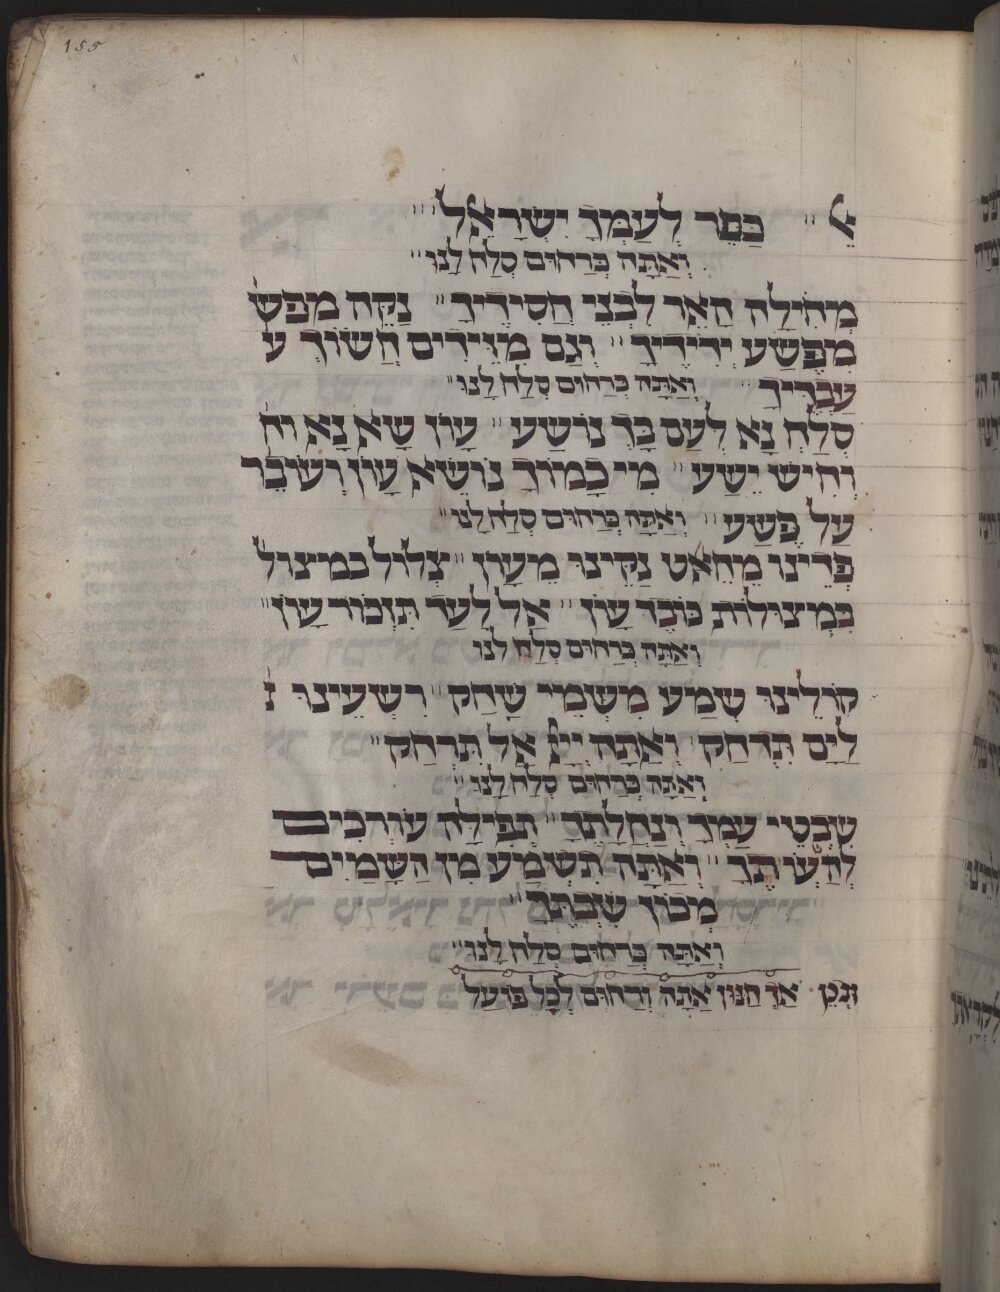 155
אל ״ כַפֵר לְעַמְךָ יִשְרָאֵל״
וְאַתָה כְּרַחוּם סְלַח לָנוּ״
מְחִילָה הָאֵר לִבְנֵי חַסִידֶיךָ״ נַקֵה מפש
מִפֶשַע יְדִידֶיךָ״ וְגַם מִזֵידִים חֲשוֹךְ ע
עַבְדֶיךָ״ וְאַתָה כְּרַחוּם סְלַח לָנוּ״
סְלַח נָא לְעַם בָךְ נוֹשַע״ עָוֹן שָא נָא וח
וְחִיש יֵשַע״ מִי כָמוֹךָ נוֹשֵא עָוֹן וְעוֹבֵר
עַל פֶשַע״ וְאַתָה כְּרַחוּם סְלַח לָנוּ״
פְדֵינוּ מֵחֵטְא נַקֵינוּ מֵעָוֹן״ צְלוֹל במצול
בִמְצוּלוֹת כוֹבֶד עָוֹן״ אַל לָעַד תִזְכוֹר עָוֹן״
וְאַתָה כְּרַחוּם סְלַח לָנוּ
קוֹלֵינוּ שְמַע מִשְמֵי שָחַק״ רִשְעֵינוּ
לַיָם תִדְחַק״ וְאַתָה ייָ אַל תִרְחַק״
וְאַתָה כְּרַחוּם סְלַח לָנוּ״
שִבְטֵי עַמְךָ וְנַחֲלָתֶךָ״ תְפִילָה עוֹרְכִים
לְקַדְשָתֶךָ״ וְאַתָה תִשְמַע מִן הַשָמַיִם
מְכוֹן שִבְתֶךָ״
וְאַתָה כְּרַחוּם סְלַח לָנוּ״
אַךְ חַנוּן אַתָה וְרַחוּם לְכָל פוֹעַל